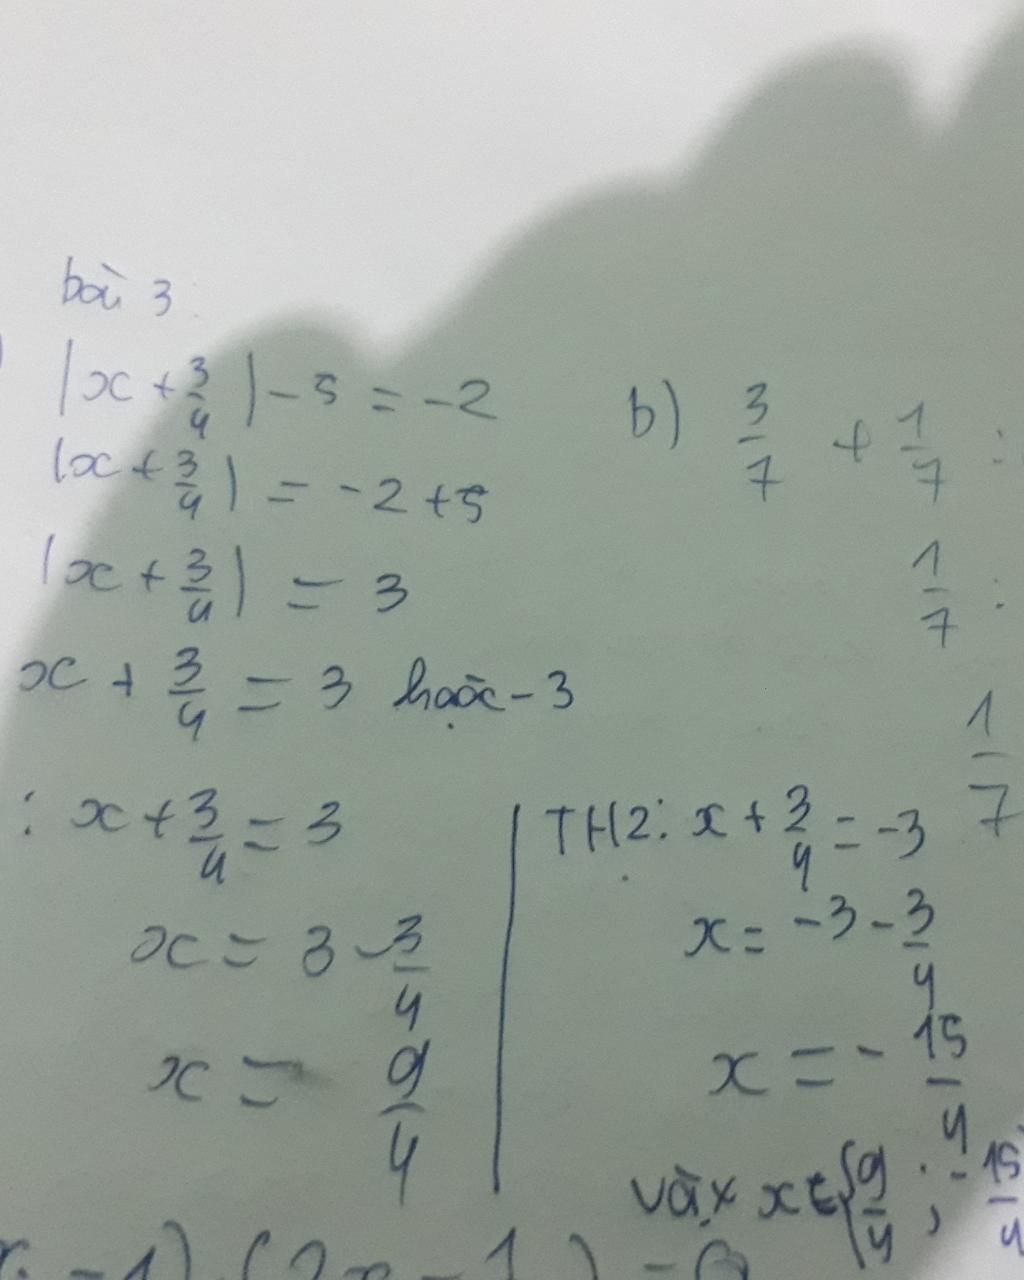 bài 3
|x + 3/4| - 5 = -2
|x + 3/4| = -2 + 5
|x + 3/4| = 3
x + 3/4 = 3 hoặc -3
: x + 3/4 = 3
x = 3 - 3/4
x = 9/4
TH2: x + 3/4 = -3
x = -3 - 3/4
x = - 15/4
vậy x ∈ {9/4 ; -15/4
b) 3/7 + 1/7 :
1/7 :
1/7
- 1) (2x - 1) = 0